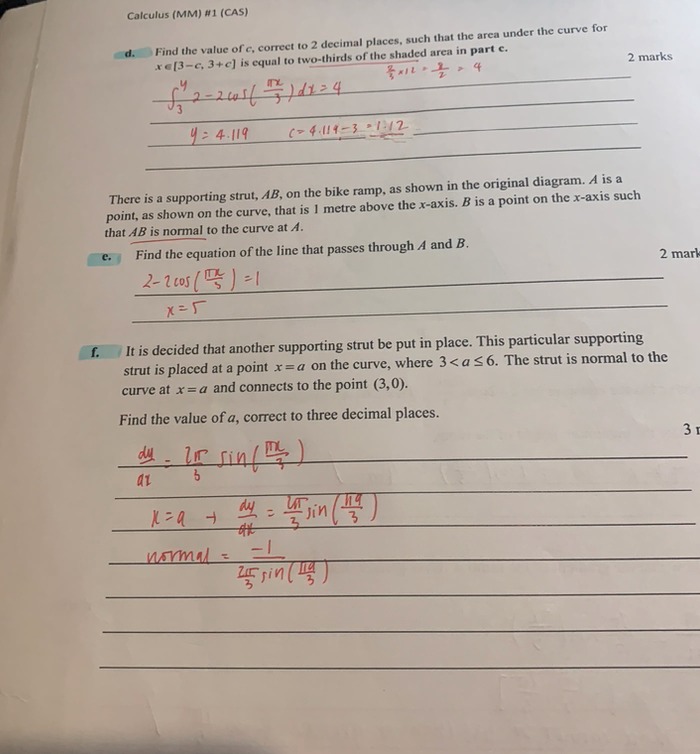 Calculus (MM) #1 (CAS)
d. Find the value of c, correct to 2 decimal places, such that the area under the curve for
x ∈ [3−c, 3+c] is equal to two-thirds of the shaded area in part c.
2 marks
2/3 × 12 = 8/2 = 4
∫₃^y 2 − 2cos(πx/3) dx = 4
y = 4.119 c = 4.119 − 3 = 1.12
There is a supporting strut, AB, on the bike ramp, as shown in the original diagram. A is a
point, as shown on the curve, that is 1 metre above the x-axis. B is a point on the x-axis such
that AB is normal to the curve at A.
e. Find the equation of the line that passes through A and B.
2 mark
2 − 2cos(πx/3) = 1
x = 5
f. It is decided that another supporting strut be put in place. This particular supporting
strut is placed at a point x = a on the curve, where 3 < a ≤ 6. The strut is normal to the
curve at x = a and connects to the point (3,0).
Find the value of a, correct to three decimal places.
3
dy/dx = 2π/3 sin(πx/3)
x = a → dy/dx = 2π/3 sin(πa/3)
normal = −1 / (2π/3 sin(πa/3))